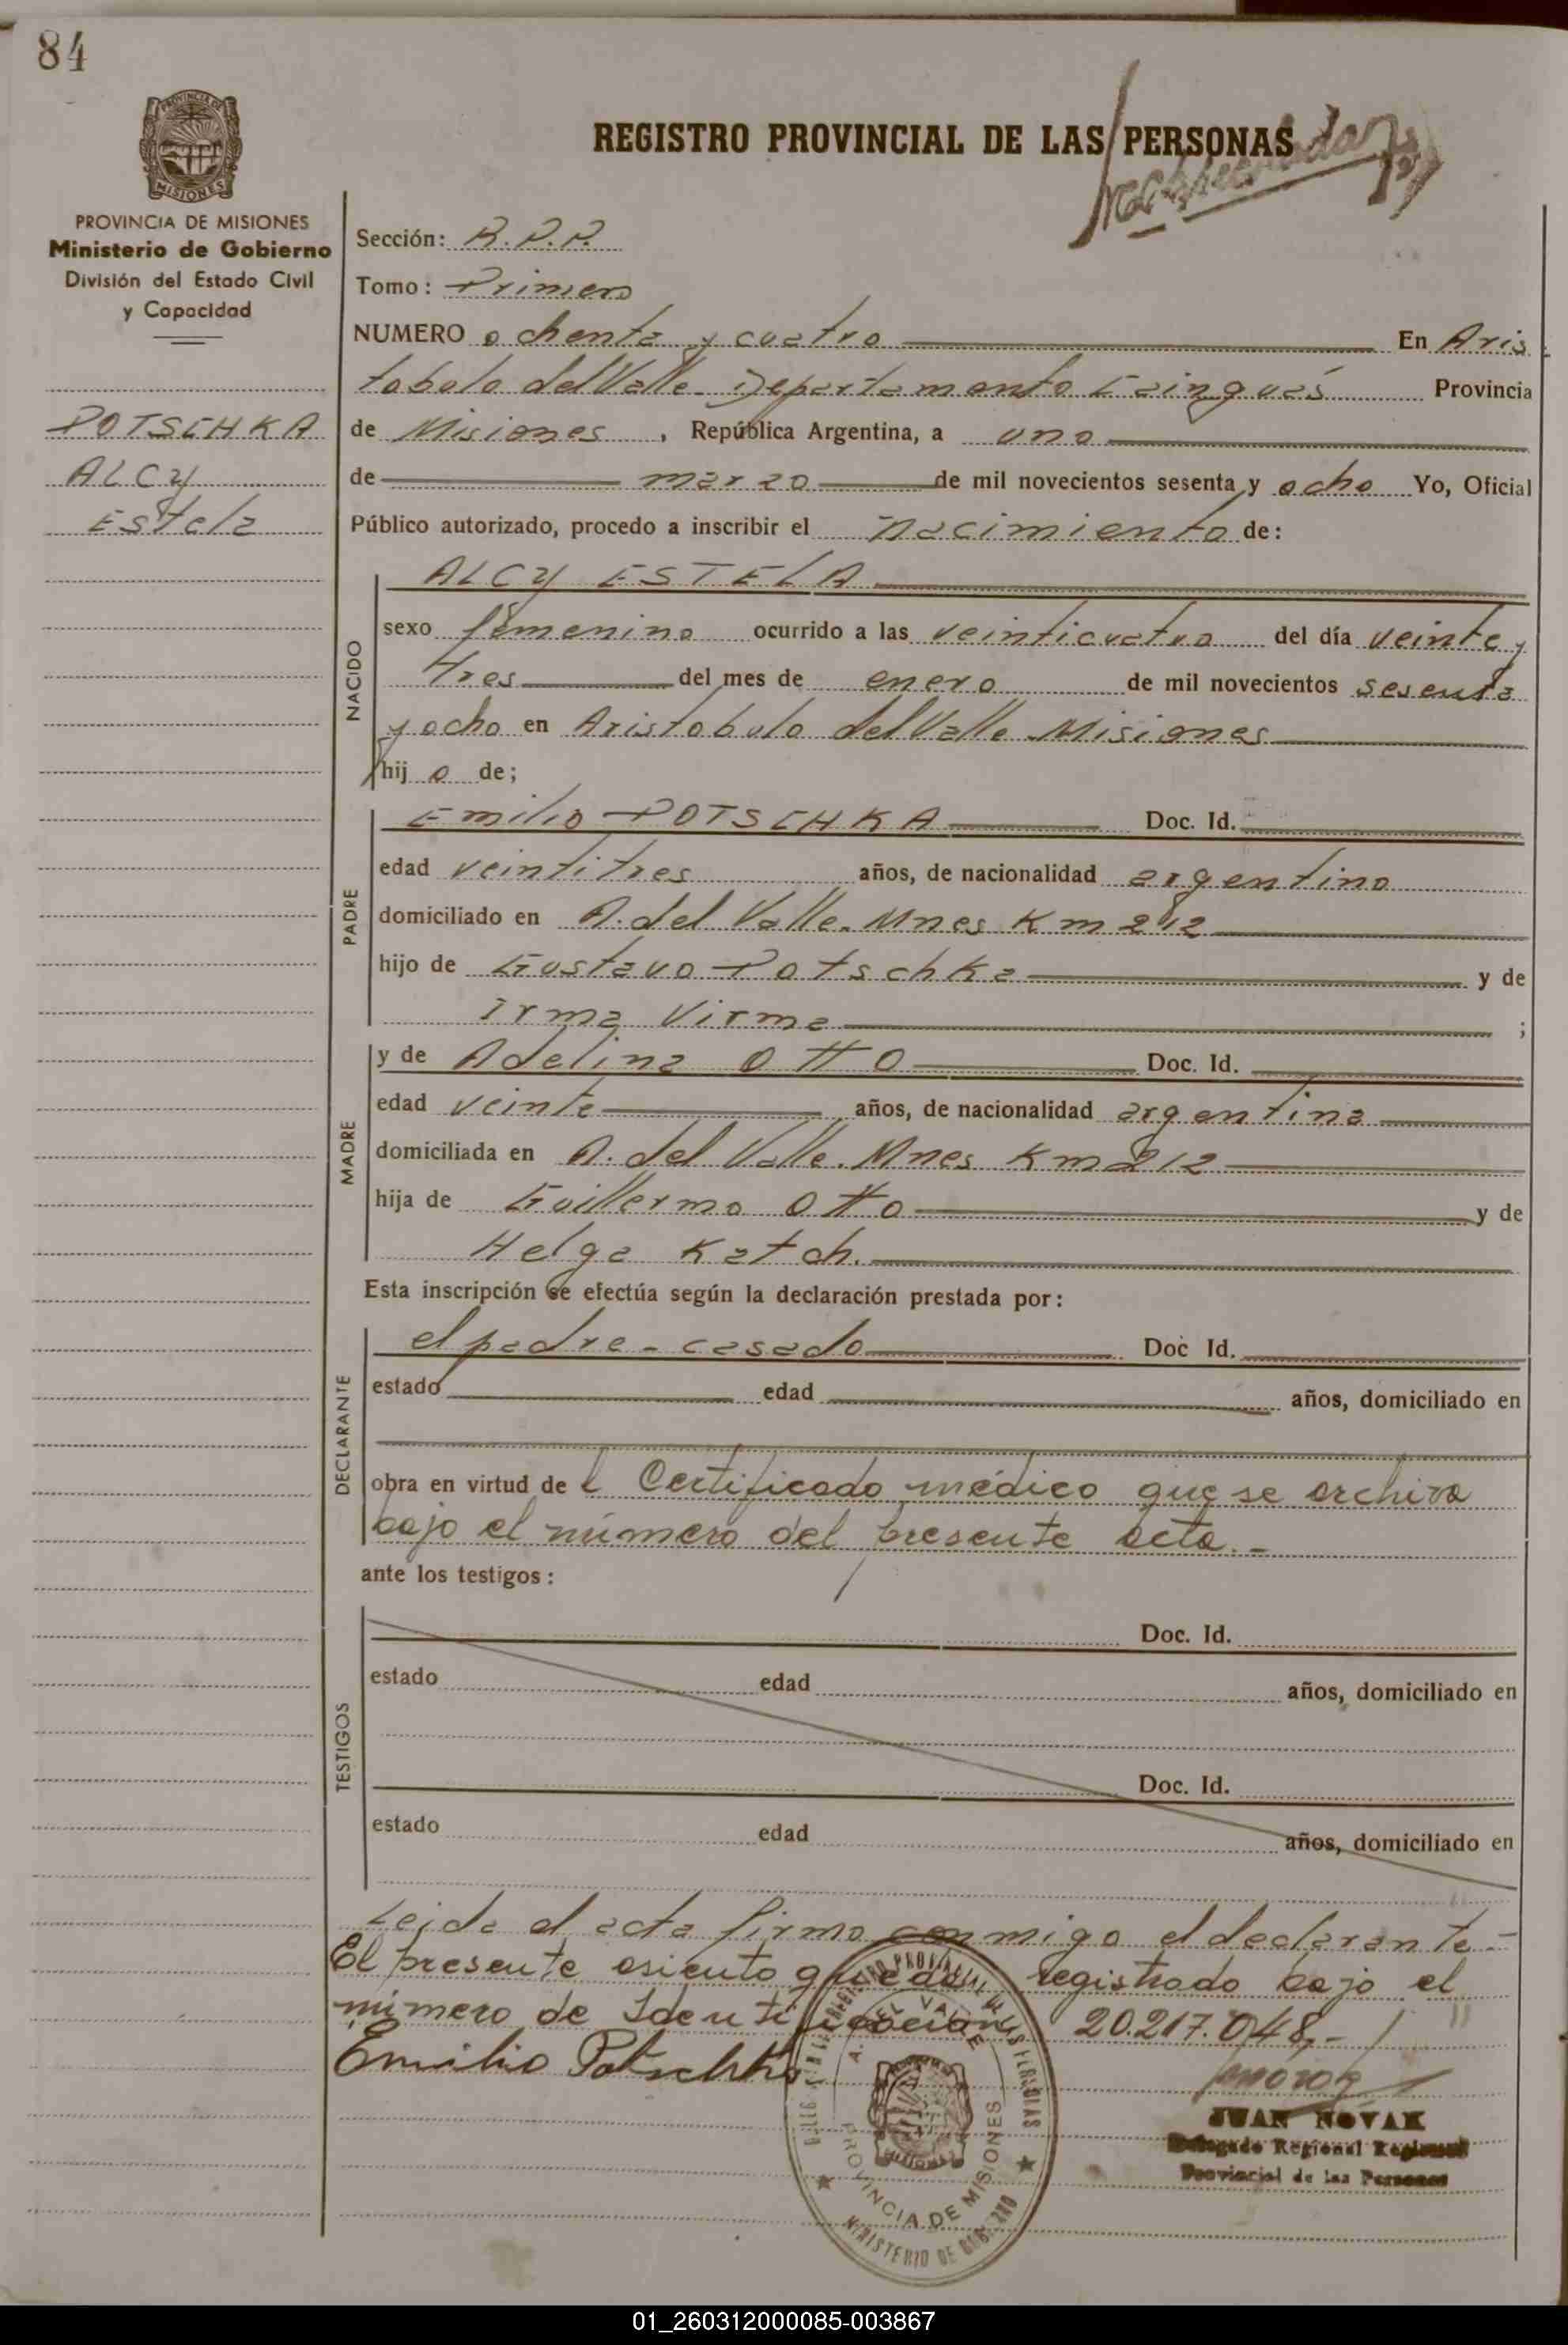 84
PROVINCIA DE
MISIONES
REGISTRO PROVINCIAL DE LAS PERSONAS
PROVINCIA DE MISIONES
Ministerio de Gobierno
División del Estado Civil
y Capacidad
POTSCHKA
ALCY
Estela
Sección: R.P.P.
Tomo: Primero
NUMERO ochenta y cuatro En Aris
tobolo del Valle. Departamento Cainguás Provincia
de Misiones, República Argentina, a uno
de marzo de mil novecientos sesenta y ocho Yo, Oficial
Público autorizado, procedo a inscribir el nacimiento de:
NACIDO
ALCY ESTELA
sexo femenino ocurrido a las veinticuatro del día veinte y
tres del mes de enero de mil novecientos sesenta
y ocho en Aristobulo del Valle Misiones
hij a de;
PADRE
Emilio POTSCHKA Doc. Id.
edad veintitres años, de nacionalidad argentino
domiciliado en A. del Valle. Mnes Km 212
hijo de Gustavo Potschka y de
Irma Virma ;
MADRE
y de Adelina Otto Doc. Id.
edad veinte años, de nacionalidad argentina
domiciliada en A. del Valle. Mnes Km 212
hija de Guillermo Otto y de
Helga Katch.
Esta inscripción se efectúa según la declaración prestada por:
DECLARANTE
el padre - casado Doc Id.
estado edad años, domiciliado en
obra en virtud de l Certificado médico que se archiva
bajo el número del presente acta.-
ante los testigos:
TESTIGOS
Doc. Id.
estado edad años, domiciliado en
Doc. Id.
estado edad años, domiciliado en
Leida el acta firma conmigo el declarante.-
El presente asiento queda registrado bajo el
número de Identificación 20.217.048,-
Emilio Potschka
REGISTRO PROVINCIAL DE LAS PERSONAS
A. DEL VALLE
MISIONES
PROVINCIA DE MISIONES
MINISTERIO DE GOBIERNO
JUAN NOVAK
Delegado Regional Registro
Provincial de las Personas
01_260312000085-003867